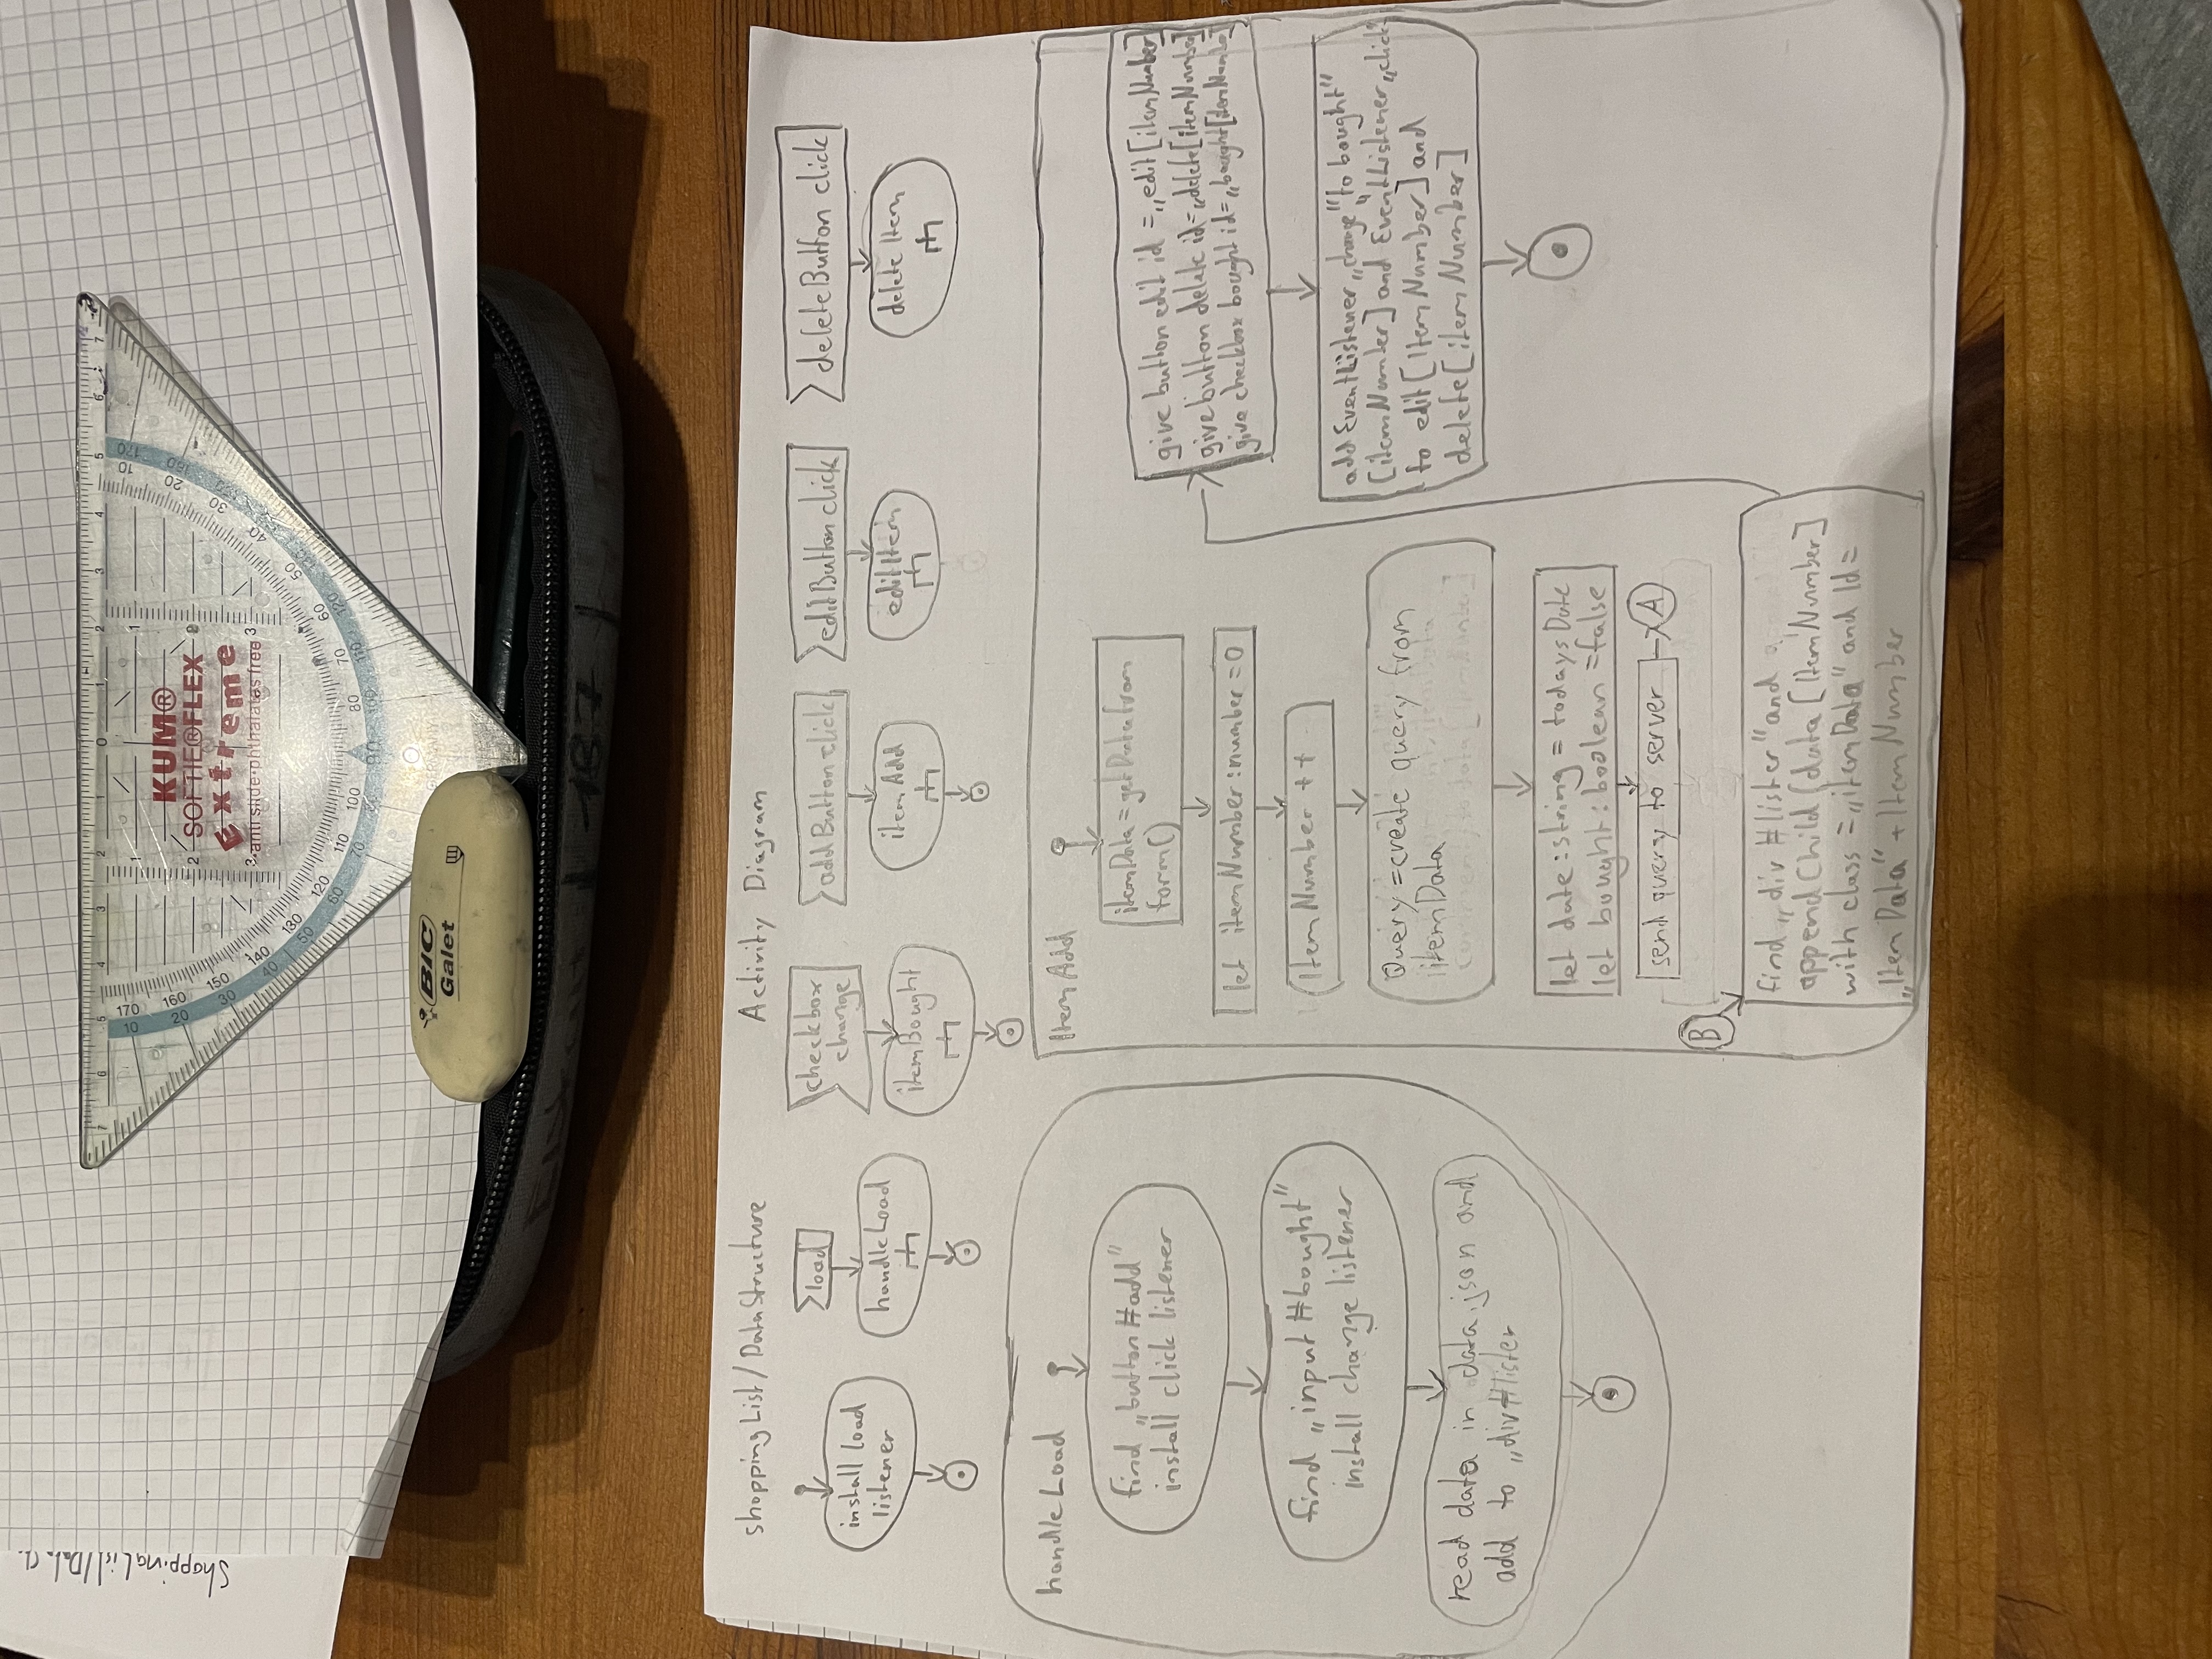 ShoppingList/Data
7 6 5 4 3 2 1 0 1 2 3 4 5 6 7
KUM®
SOFTIE®FLEX
Extreme
anti slide·phthalates free
GERMANY
BIC
Galet
187
shoppingList/DataStructure
Activity Diagram
install load
listener
load
handleLoad
checkbox
change
itemBought
addButton click
itemAdd
editButton click
editItem
deleteButton click
delete Item
handleLoad
find „button#add"
install click listener
find „input#bought"
install change listener
read data in data.json and
add to „div#lister
ItemAdd
itemData=getDatafrom
form()
let itemNumber:number=0
ItemNumber ++
Query=create query from
itemData
let date:string = todaysDate
let bought:boolean =false
send query to server
A
B
find „div #lister" and
appendChild(data[ItemNumber]
with class =„itemData" and Id=
„ItemData"+ItemNumber
give button edit id =„edit[itemNumber]
give button delete id=„delete[itemNumber]
give checkbox bought id=„bought[itemNumber]
addEventListener „change" to bought"
[itemNumter] and EventListener „click"
to edit[ItemNumber] and
delete[itemNumber]